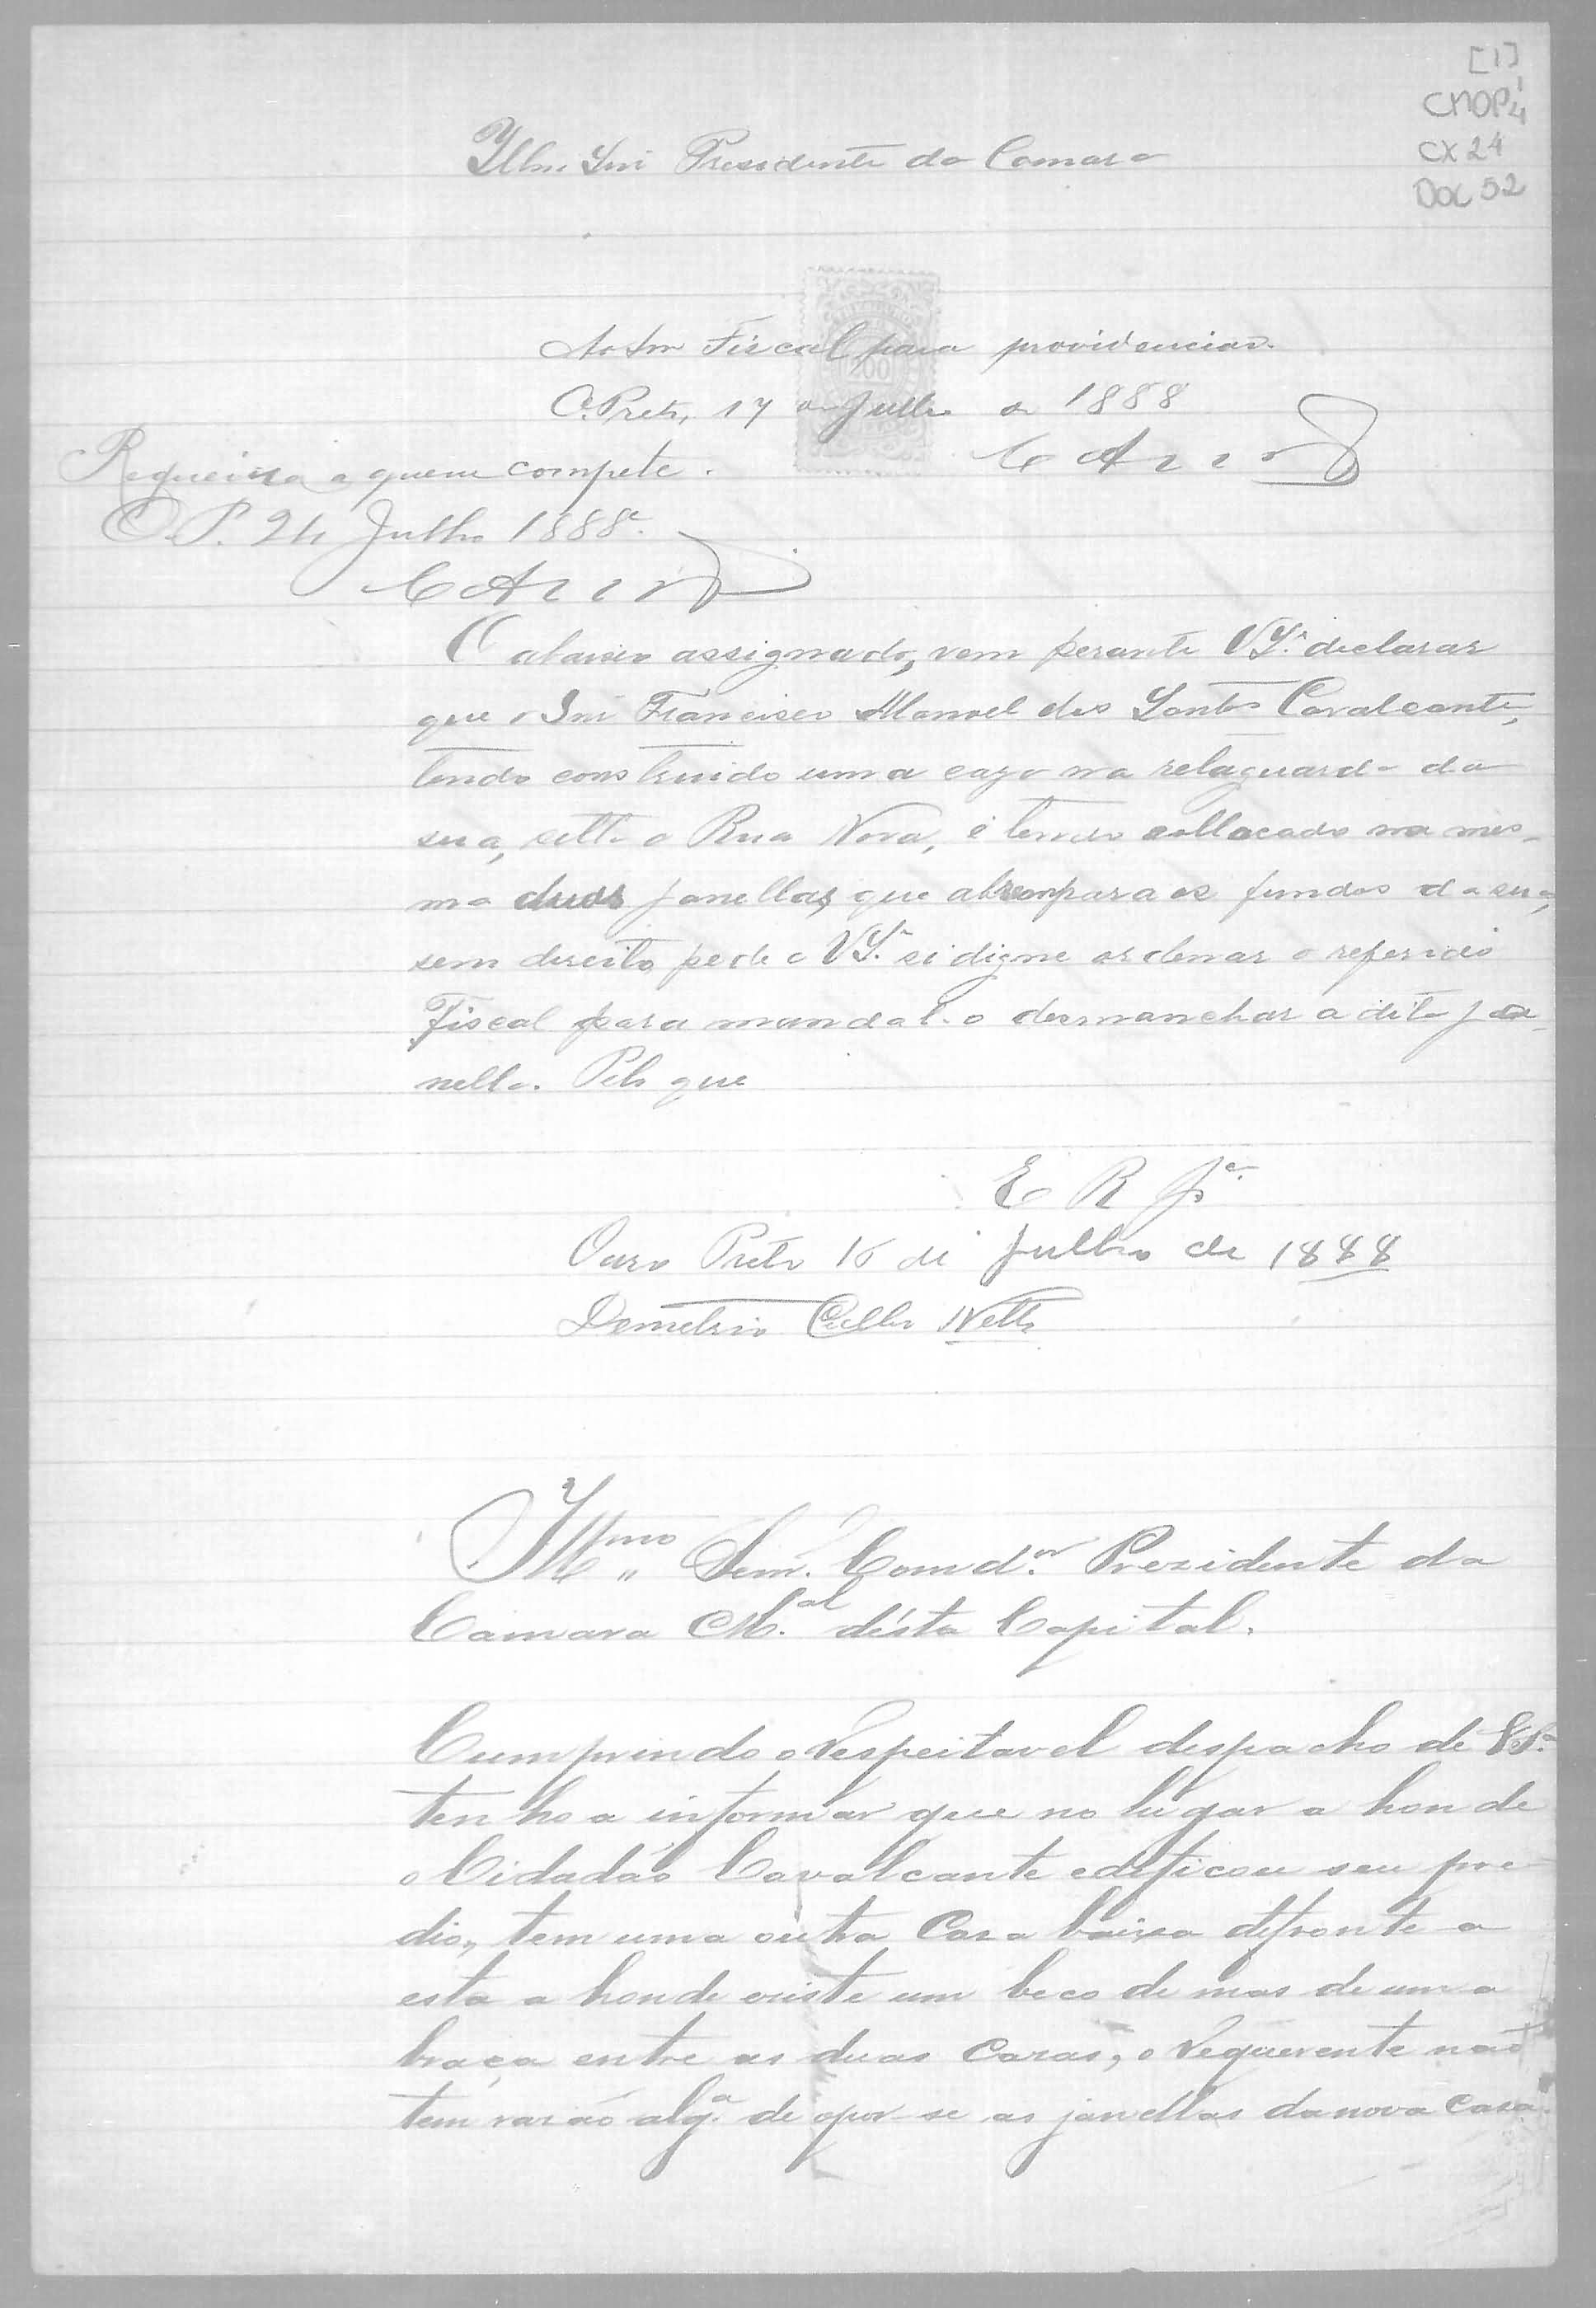 [1]
CMOP
CX 24
DOC 52
Illmo Snr Presidente da Camara
Ao Snr Fiscal para providenciar.
O. Preto, 17 de Julho de 1888
200
Requeira a quem compete.
O. P. 24 Julho 1888.
O abaixo assignado, vem perante VSª. declarar
que o Snr Francisco Manoel dos Santos Cavalcante,
tendo construido uma caza na retaguarda da
sua, sitto a Rua Nova, e tendo collocado na mes-
ma duas janellas, que abrem para os fundos da sua,
sem direito, pede a VSª. si digne ordenar o referido
Fiscal para mandal-o desmanchar a dita ja-
nella. Pelo que
E R Mce.
Ouro Preto 16 de Julho de 1888
Demetrio Coelho Netto
Illmo Senr. Comdor. Prezidente da
Camara Mal. désta Capital.
Cumprindo o respeitavel despacho de VSª.
tenho a informar que no lugar a honde
o Cidadão Cavalcante edificou seu pre
dio, tem uma outra Casa baixa defronte a
esta a honde existe um beco de mas de uma
braça entre as duas Cazas, o requerente não
tem razão alga. de opor-se as janellas da nova Casa.